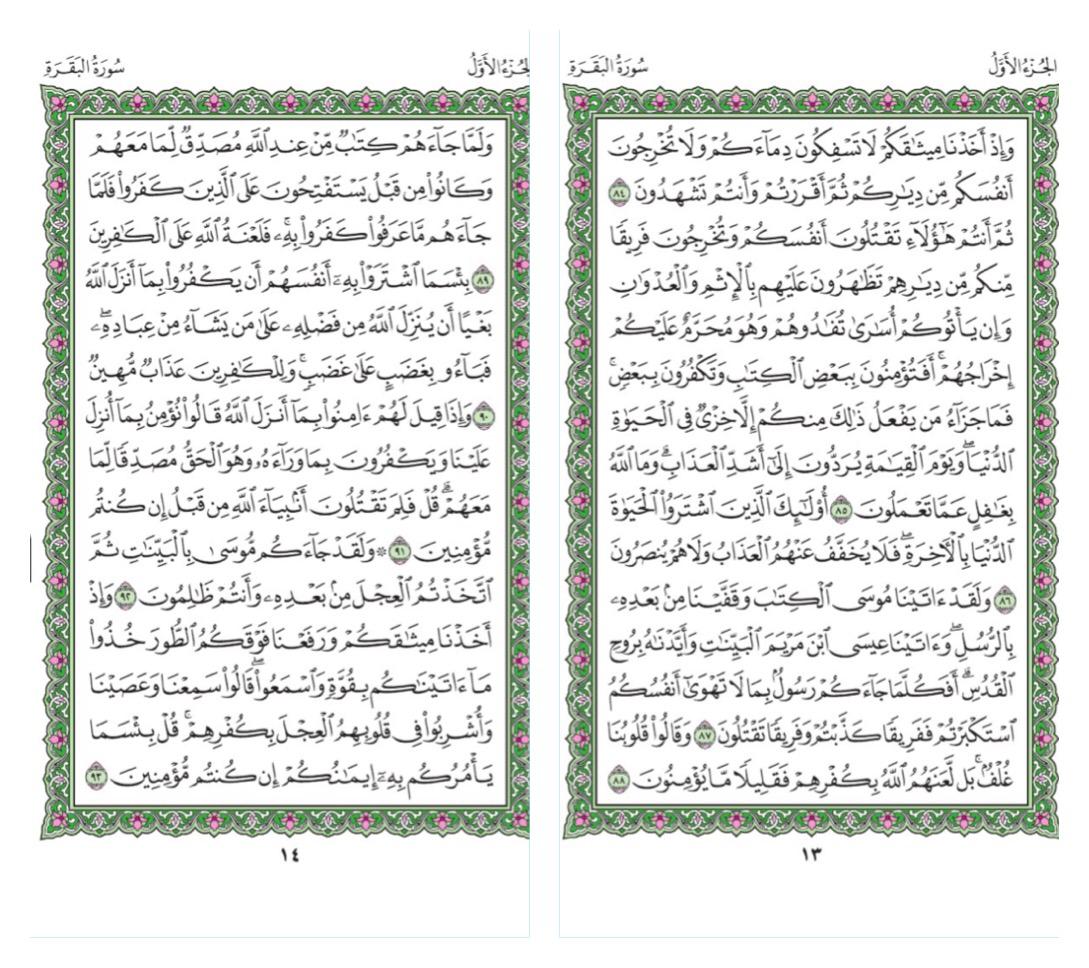 الجزء الأول
سورة البقرة
وَإِذْ أَخَذْنَا مِيثَٰقَكُمْ لَا تَسْفِكُونَ دِمَآءَكُمْ وَلَا تُخْرِجُونَ
أَنفُسَكُم مِّن دِيَٰرِكُمْ ثُمَّ أَقْرَرْتُمْ وَأَنتُمْ تَشْهَدُونَ ٨٤
ثُمَّ أَنتُمْ هَٰٓؤُلَآءِ تَقْتُلُونَ أَنفُسَكُمْ وَتُخْرِجُونَ فَرِيقًا
مِّنكُم مِّن دِيَٰرِهِمْ تَظَٰهَرُونَ عَلَيْهِم بِٱلْإِثْمِ وَٱلْعُدْوَٰنِ
وَإِن يَأْتُوكُمْ أُسَٰرَىٰ تُفَٰدُوهُمْ وَهُوَ مُحَرَّمٌ عَلَيْكُمْ
إِخْرَاجُهُمْ ۚ أَفَتُؤْمِنُونَ بِبَعْضِ ٱلْكِتَٰبِ وَتَكْفُرُونَ بِبَعْضٍ ۚ
فَمَا جَزَآءُ مَن يَفْعَلُ ذَٰلِكَ مِنكُمْ إِلَّا خِزْىٌ فِى ٱلْحَيَوٰةِ
ٱلدُّنْيَا ۖ وَيَوْمَ ٱلْقِيَٰمَةِ يُرَدُّونَ إِلَىٰٓ أَشَدِّ ٱلْعَذَابِ ۗ وَمَا ٱللَّهُ
بِغَٰفِلٍ عَمَّا تَعْمَلُونَ ٨٥ أُو۟لَٰٓئِكَ ٱلَّذِينَ ٱشْتَرَوُا۟ ٱلْحَيَوٰةَ
ٱلدُّنْيَا بِٱلْءَاخِرَةِ ۖ فَلَا يُخَفَّفُ عَنْهُمُ ٱلْعَذَابُ وَلَا هُمْ يُنصَرُونَ
٨٦ وَلَقَدْ ءَاتَيْنَا مُوسَى ٱلْكِتَٰبَ وَقَفَّيْنَا مِنۢ بَعْدِهِۦ
بِٱلرُّسُلِ ۖ وَءَاتَيْنَا عِيسَى ٱبْنَ مَرْيَمَ ٱلْبَيِّنَٰتِ وَأَيَّدْنَٰهُ بِرُوحِ
ٱلْقُدُسِ ۗ أَفَكُلَّمَا جَآءَكُمْ رَسُولٌۢ بِمَا لَا تَهْوَىٰٓ أَنفُسُكُمُ
ٱسْتَكْبَرْتُمْ فَفَرِيقًا كَذَّبْتُمْ وَفَرِيقًا تَقْتُلُونَ ٨٧ وَقَالُوا۟ قُلُوبُنَا
غُلْفٌۢ ۚ بَل لَّعَنَهُمُ ٱللَّهُ بِكُفْرِهِمْ فَقَلِيلًا مَّا يُؤْمِنُونَ ٨٨
١٣
الجزء الأول
سورة البقرة
وَلَمَّا جَآءَهُمْ كِتَٰبٌ مِّنْ عِندِ ٱللَّهِ مُصَدِّقٌ لِّمَا مَعَهُمْ
وَكَانُوا۟ مِن قَبْلُ يَسْتَفْتِحُونَ عَلَى ٱلَّذِينَ كَفَرُوا۟ فَلَمَّا
جَآءَهُم مَّا عَرَفُوا۟ كَفَرُوا۟ بِهِۦ ۚ فَلَعْنَةُ ٱللَّهِ عَلَى ٱلْكَٰفِرِينَ
٨٩ بِئْسَمَا ٱشْتَرَوْا۟ بِهِۦٓ أَنفُسَهُمْ أَن يَكْفُرُوا۟ بِمَآ أَنزَلَ ٱللَّهُ
بَغْيًا أَن يُنَزِّلَ ٱللَّهُ مِن فَضْلِهِۦ عَلَىٰ مَن يَشَآءُ مِنْ عِبَادِهِۦ ۖ
فَبَآءُو بِغَضَبٍ عَلَىٰ غَضَبٍ ۚ وَلِلْكَٰفِرِينَ عَذَابٌ مُّهِينٌ
٩٠ وَإِذَا قِيلَ لَهُمْ ءَامِنُوا۟ بِمَآ أَنزَلَ ٱللَّهُ قَالُوا۟ نُؤْمِنُ بِمَآ أُنزِلَ
عَلَيْنَا وَيَكْفُرُونَ بِمَا وَرَآءَهُۥ وَهُوَ ٱلْحَقُّ مُصَدِّقًا لِّمَا
مَعَهُمْ ۗ قُلْ فَلِمَ تَقْتُلُونَ أَنۢبِيَآءَ ٱللَّهِ مِن قَبْلُ إِن كُنتُم
مُّؤْمِنِينَ ٩١ ۞ وَلَقَدْ جَآءَكُم مُّوسَىٰ بِٱلْبَيِّنَٰتِ ثُمَّ
ٱتَّخَذْتُمُ ٱلْعِجْلَ مِنۢ بَعْدِهِۦ وَأَنتُمْ ظَٰلِمُونَ ٩٢ وَإِذْ
أَخَذْنَا مِيثَٰقَكُمْ وَرَفَعْنَا فَوْقَكُمُ ٱلطُّورَ خُذُوا۟
مَآ ءَاتَيْنَٰكُم بِقُوَّةٍ وَٱسْمَعُوا۟ ۖ قَالُوا۟ سَمِعْنَا وَعَصَيْنَا
وَأُشْرِبُوا۟ فِى قُلُوبِهِمُ ٱلْعِجْلَ بِكُفْرِهِمْ ۚ قُلْ بِئْسَمَا
يَأْمُرُكُم بِهِۦٓ إِيمَٰنُكُمْ إِن كُنتُم مُّؤْمِنِينَ ٩٣
١٤